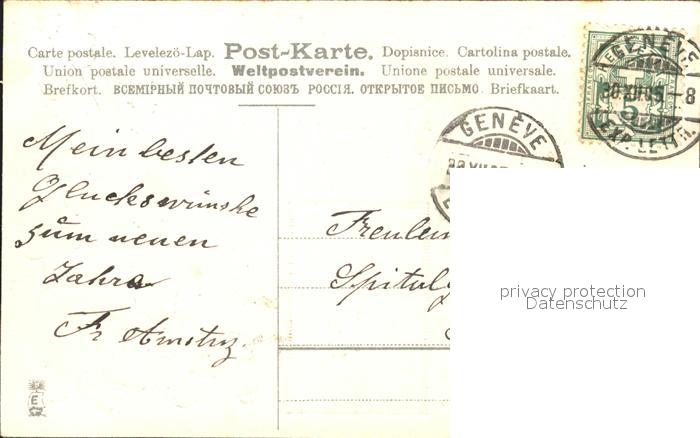 Carte postale. Levelezö-Lap. Post-Karte. Dopisnice. Cartolina postale.
Union postale universelle. Weltpostverein. Unione postale universale.
Brefkort. ВСЕМІРНЫЙ ПОЧТОВЫЙ СОЮЗЪ РОССІЯ. ОТКРЫТОЕ ПИСЬМО. Briefkaart.
GENÈVE
30.XII.05.–8
5
EXP. LETTR
GENÈVE
Mein besten
Gluckswünshe
züm neuen
Jahre
Fr
Freulein
privacy protection
Datenschutz
E